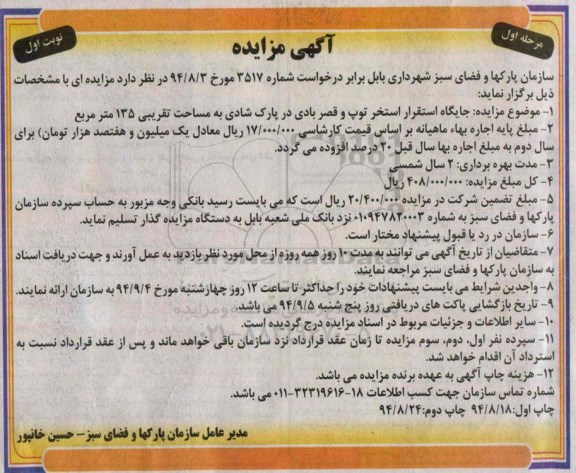 مرحله اول
نوبت اول
آگهی مزایده
سازمان پارکها و فضای سبز شهرداری بابل برابر درخواست شماره ۳۵۱۷ مورخ ۹۴/۸/۳ در نظر دارد مزایده ای با مشخصات
ذیل برگزار نماید:
۱- موضوع مزایده: جایگاه استقرار استخر توپ و قصر بادی در پارک شادی به مساحت تقریبی ۱۳۵ متر مربع
۲- مبلغ پایه اجاره بهاء ماهیانه بر اساس قیمت کارشناسی ۱۷/۰۰۰/۰۰۰ ریال معادل یک میلیون و هفتصد هزار تومان) برای
سال دوم به مبلغ اجاره بها سال قبل ۲۰ درصد افزوده می گردد.
۳- مدت بهره برداری: ۲ سال شمسی
۴- کل مبلغ مزایده: ۴۰۸/۰۰۰/۰۰۰ ریال
۵- مبلغ تضمین شرکت در مزایده ۲۰/۴۰۰/۰۰۰ ریال است که می بایست رسید بانکی وجه مزبور به حساب سپرده سازمان
پارکها و فضای سبز به شماره ۰۱۰۹۴۷۸۲۰۰۰۳ نزد بانک ملی شعبه بابل به دستگاه مزایده گذار تسلیم نماید.
۶- سازمان در رد یا قبول پیشنهاد مختار است.
۷- متقاضیان از تاریخ آگهی می توانند به مدت ۱۰ روز همه روزه از محل مورد نظر بازدید به عمل آورند و جهت دریافت اسناد
به سازمان پارکها و فضای سبز مراجعه نمایند.
۸- واجدین شرایط می بایست پیشنهادات خود را حداکثر تا ساعت ۱۲ روز چهارشنبه مورخ ۹۴/۹/۴ به سازمان ارائه نمایند.
۹- تاریخ بازگشایی پاکت های دریافتی روز پنج شنبه ۹۴/۹/۵ می باشد.
۱۰- سایر اطلاعات و جزئیات مربوط در اسناد مزایده درج گردیده است.
۱۱- سپرده نفر اول، دوم، سوم مزایده تا زمان عقد قرارداد نزد سازمان باقی خواهد ماند و پس از عقد قرارداد نسبت به
استرداد آن اقدام خواهد شد.
۱۲- هزینه چاپ آگهی به عهده برنده مزایده می باشد.
شماره تماس سازمان جهت کسب اطلاعات ۱۸-۳۲۳۱۹۶۱۶-۰۱۱ می باشد.
چاپ اول: ۹۴/۸/۱۸ چاپ دوم: ۹۴/۸/۲۴
مدیر عامل سازمان پارکها و فضای سبز - حسین خانپور